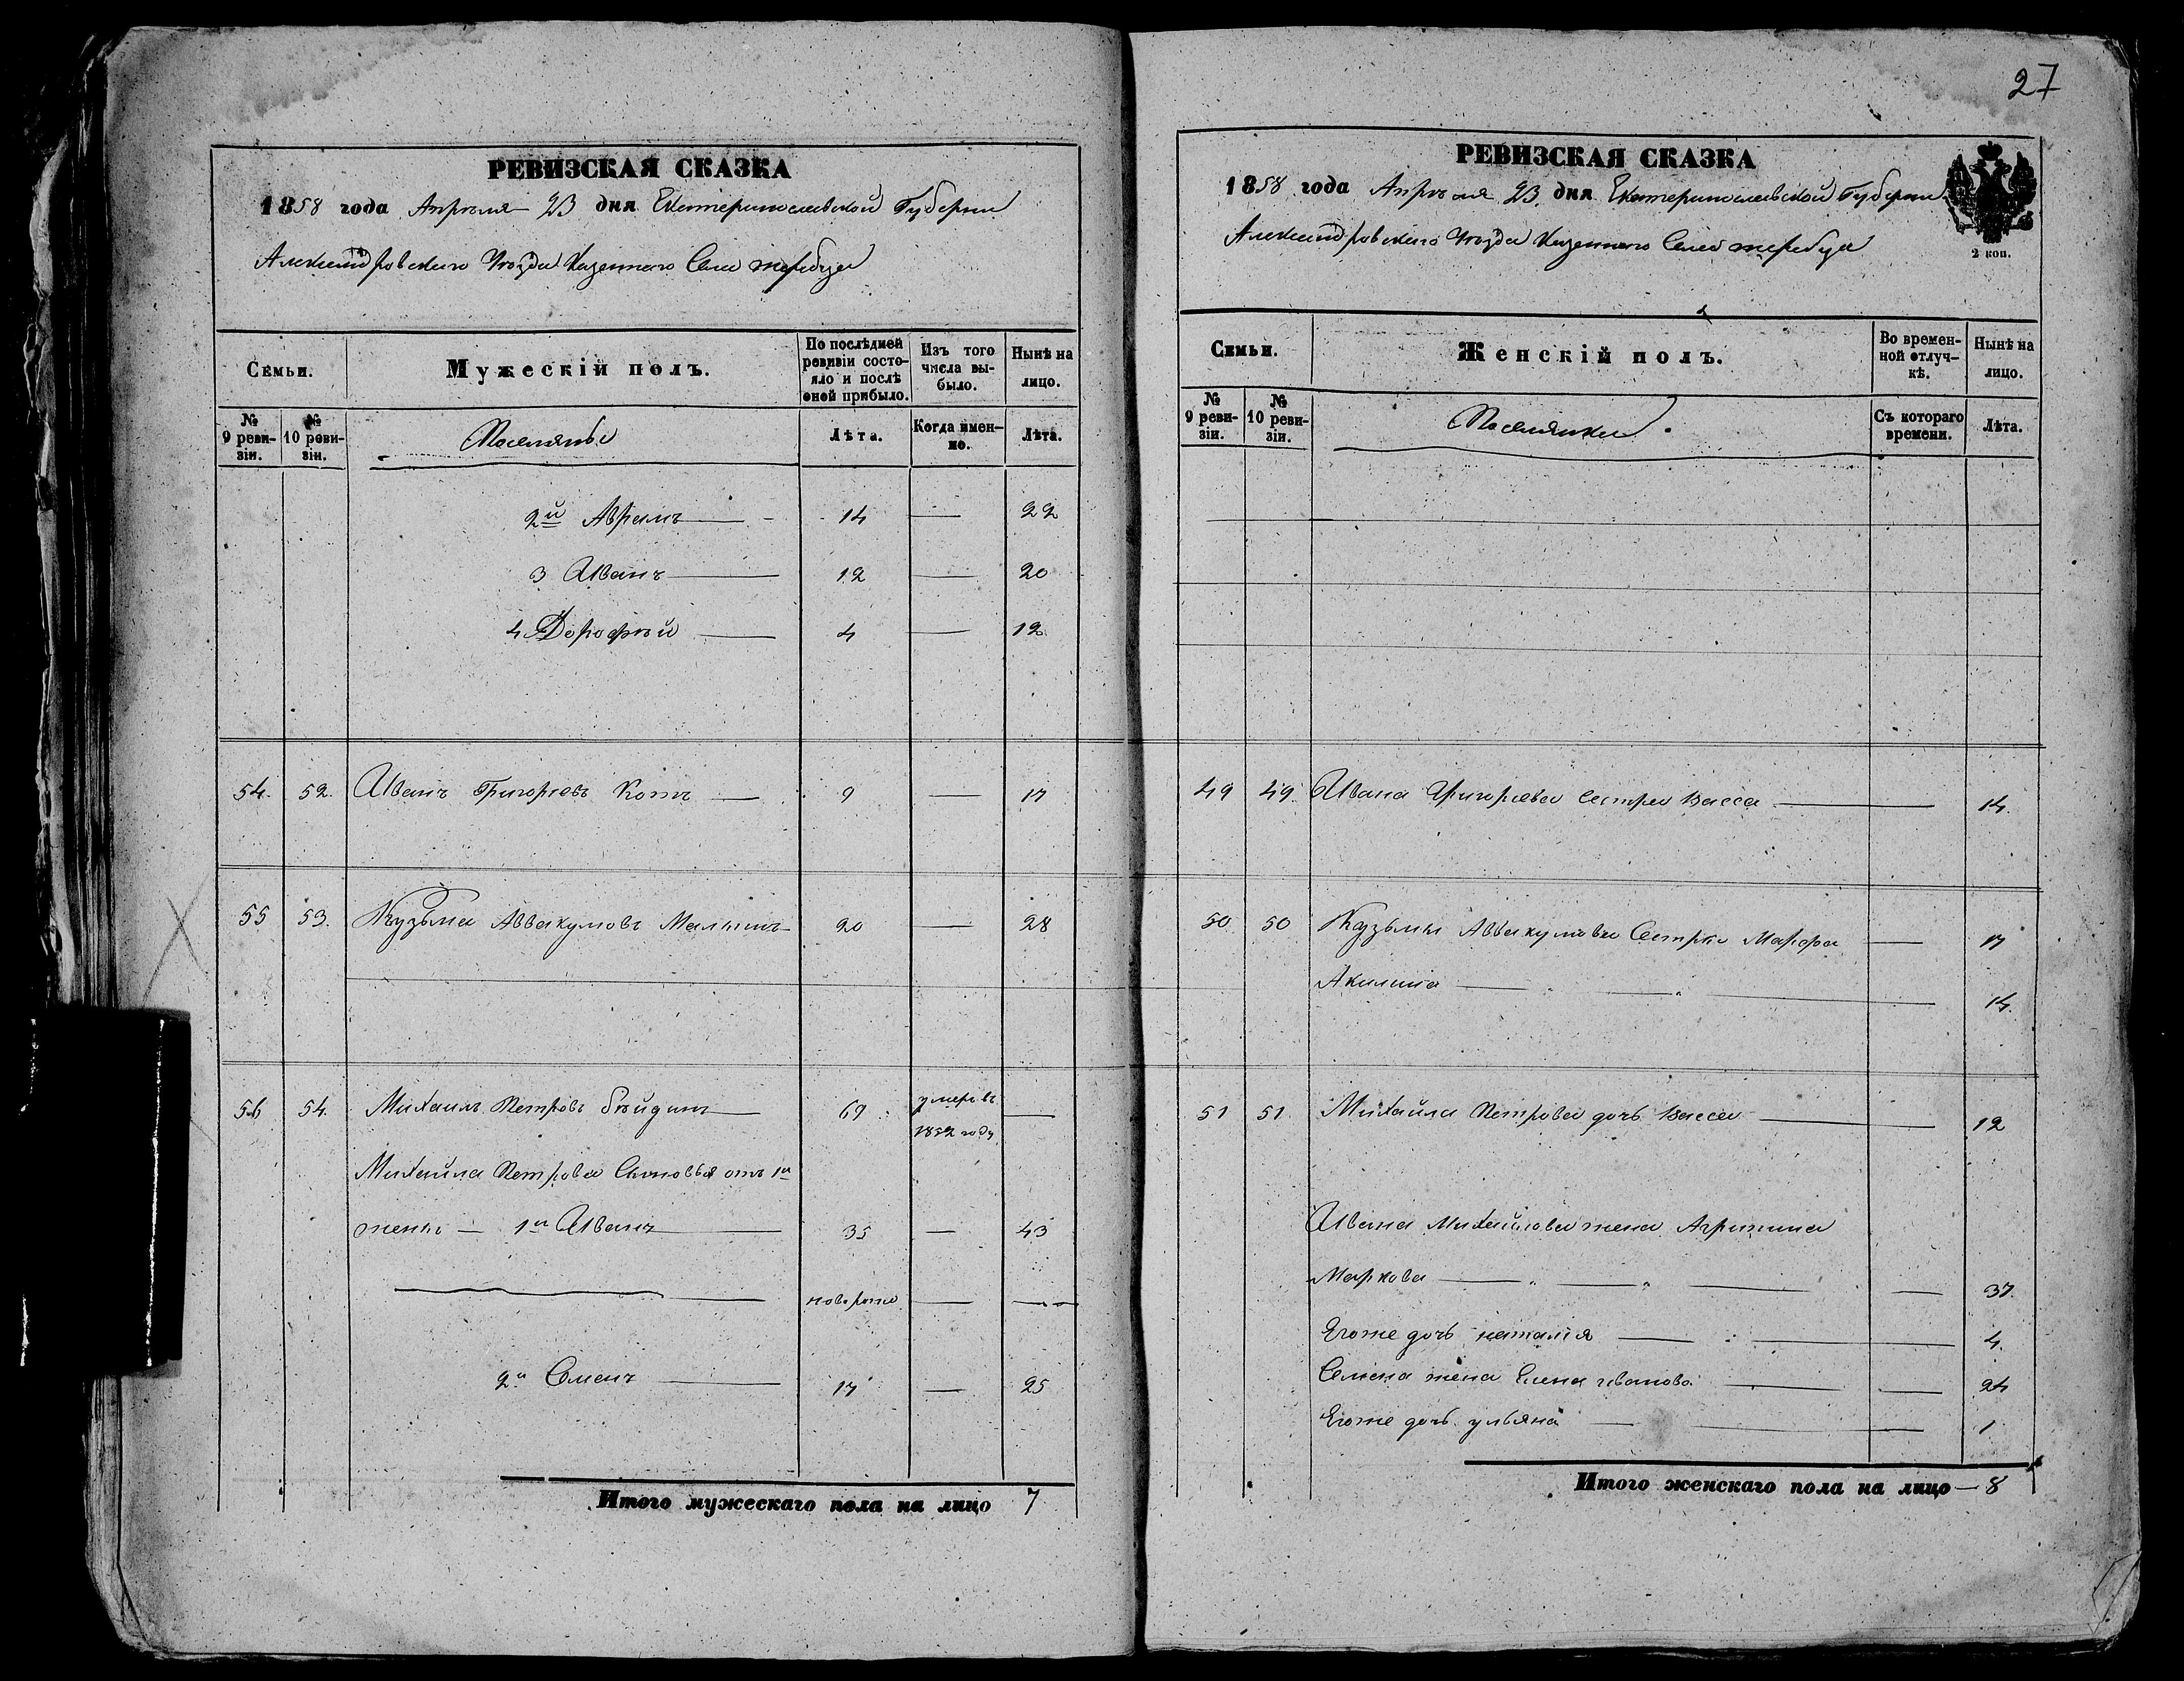 РЕВИЗСКАЯ СКАЗКА
1858 года Апрѣля 23 дня Екатеринославской Губерніи
Александровскаго Уѣзда Казеннаго Села
Семьи.
Мужескій полъ.
По послѣдней ревизіи состояло и послѣ оной прибыло.
Изъ того числа выбыло.
Нынѣ на лицо.
№ 9 ревизіи.
№ 10 ревизіи.
Поселяны
Лѣта.
Когда именно.
Лѣта.
2й Аврамъ — 14 — 22
3 Иванъ — 12 — 20
4 Дорофѣй — 4 — 12
54. 52. Иванъ Григорьевъ Котъ — 9 — 17
55 53. Кузьма Аввакумовъ — 20 — 28
56 54. Михаилъ Петровъ — 69 умеръ въ 1852 году —
Михайла Петрова Сыновья отъ 1й
жены — 1й Иванъ — 35 — 43
новорож — —
2й Семенъ — 17 — 25
Итого мужескаго пола на лицо 7
27
РЕВИЗСКАЯ СКАЗКА
1858 года Апрѣля 23. дня Екатеринославской Губерніи
Александровскаго Уѣзда Казеннаго Села
2 коп.
Семьи.
Женскій полъ.
Во временной отлучкѣ.
Нынѣ на лицо.
№ 9 ревизіи.
№ 10 ревизіи.
Поселянки
Съ котораго времени.
Лѣта.
49 49. Ивана Григорьева сестра Васса — 14.
50 50 Кузьмы Аввакумова Сестры Марфа — 17
Акилина — " — " — 14.
51 51 Михайла Петрова дочь Васса — 12
Ивана Михайлова жена Агрипина
Маркова — " — " — 37.
Егоже дочь наталія — 4.
Семена жена Елена иванова — 24
Егоже дочь ульяна — 1
Итого женскаго пола на лицо — 8